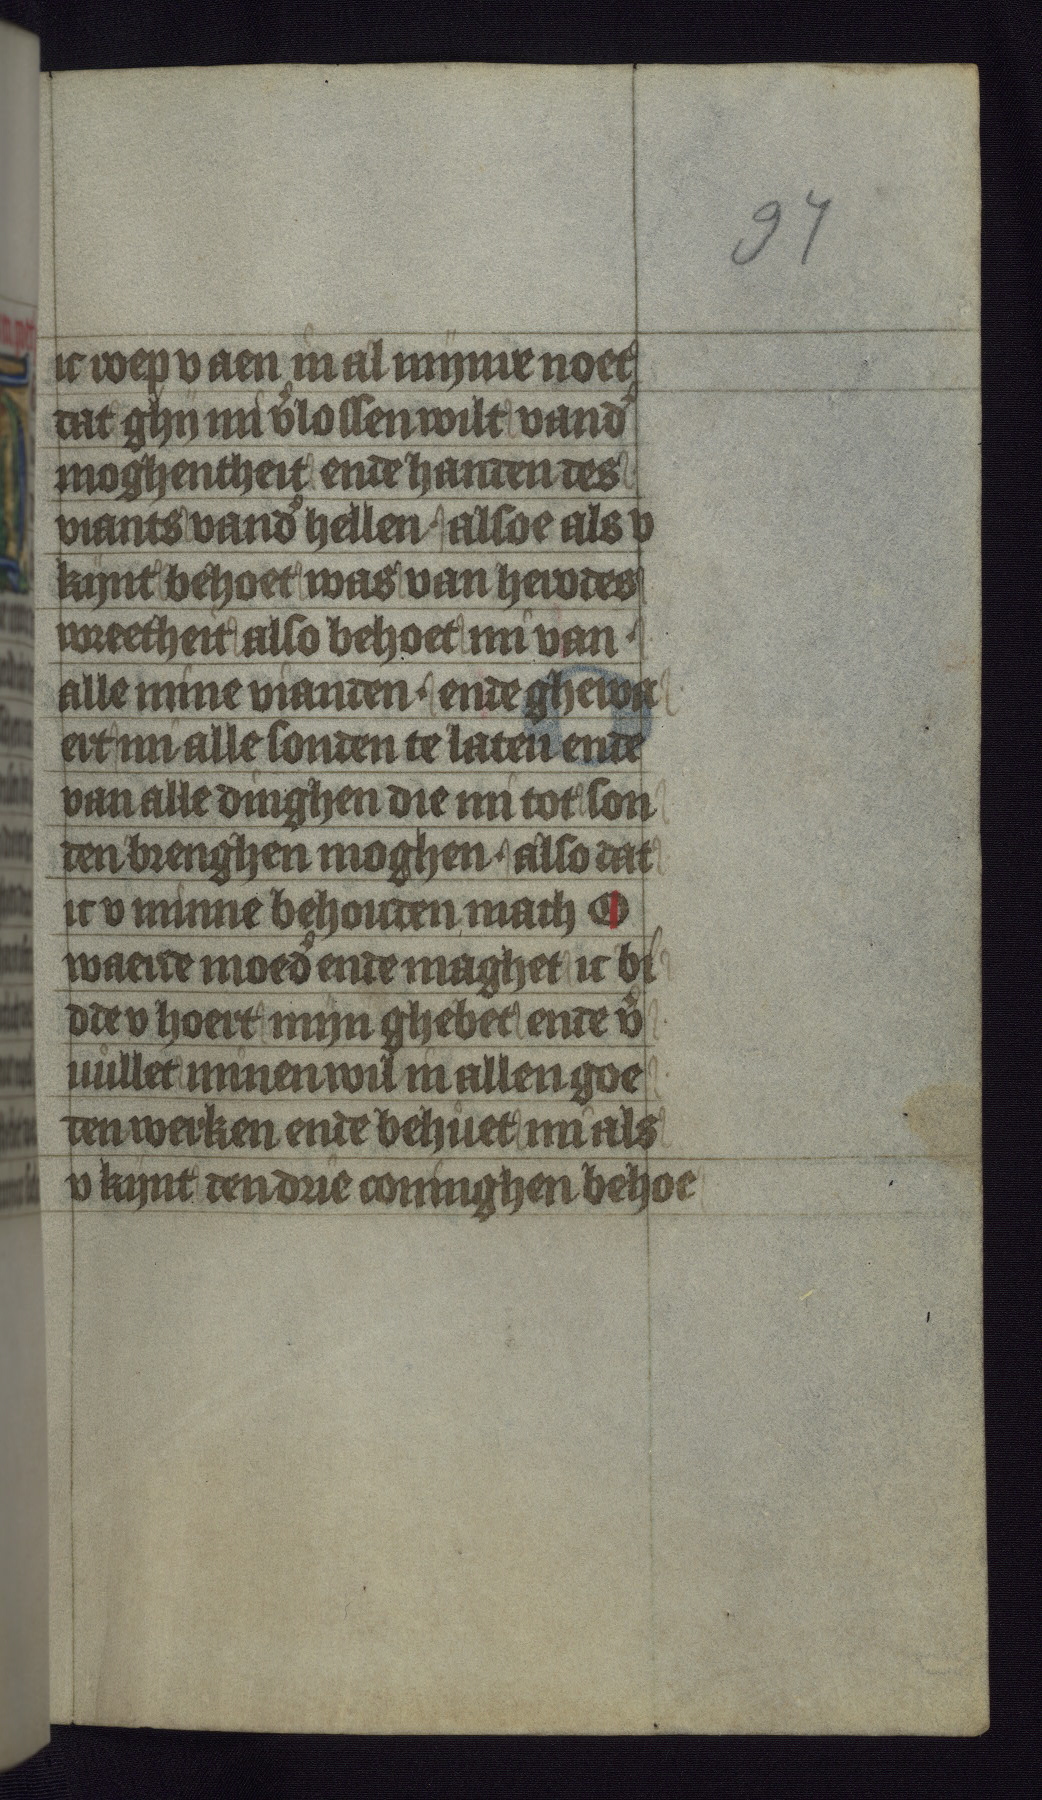 94
ic roep v aen in al mijnre noet
dat ghij mi v̾lossen wilt vand̾
moghentheit ende handen des
viants vand̾ hellen · alsoe als v
kijnt behoet was van herodes
wreetheit also behoet mi van ·
alle mine vianden · ende ghewa
ert mi alle sonden te laten ende
van alle dinghen die mi tot son
den brenghen moghen · also dat
ic v minne behouden mach O
waerde moed̾ ende maghet ic bi
dde v hoert mijn ghebet ende v̾
vullet minen wil in allen goe
den werken ende behuet mi als
v kijnt den drie coninghen behoe